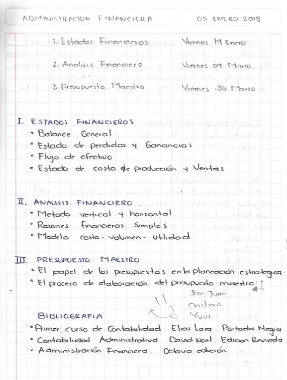 ADMINISTRACION FINANCIERA 05 ENERO 2018
1. Estados Financieros Viernes 19 Enero
2. Analisis Financiero Viernes 09 Marzo
3. Presupuesto Maestro Viernes 30 Marzo
I. ESTADOS FINANCIEROS
• Balance General
• Estado de perdidas y Ganancias
• Flujo de efectivo
• Estado de costo de producción y Ventas
II. ANALISIS FINANCIERO
• Metodo vertical y horizontal
• Razones financieras simples
• Modelo costo - volumen - utilidad
III. PRESUPUESTO MAESTRO
• El papel de los presupuestos en la planeación estrategica
• El proceso de elaboración del presupuesto maestro
Juan
Cristian
Yuri
BIBLIOGRAFIA
• Primer curso de Contabilidad Elias Lara Portada Negra
• Contabilidad Administrativa David Noel Edicion Revisada
• Administración Financiera Octava edición